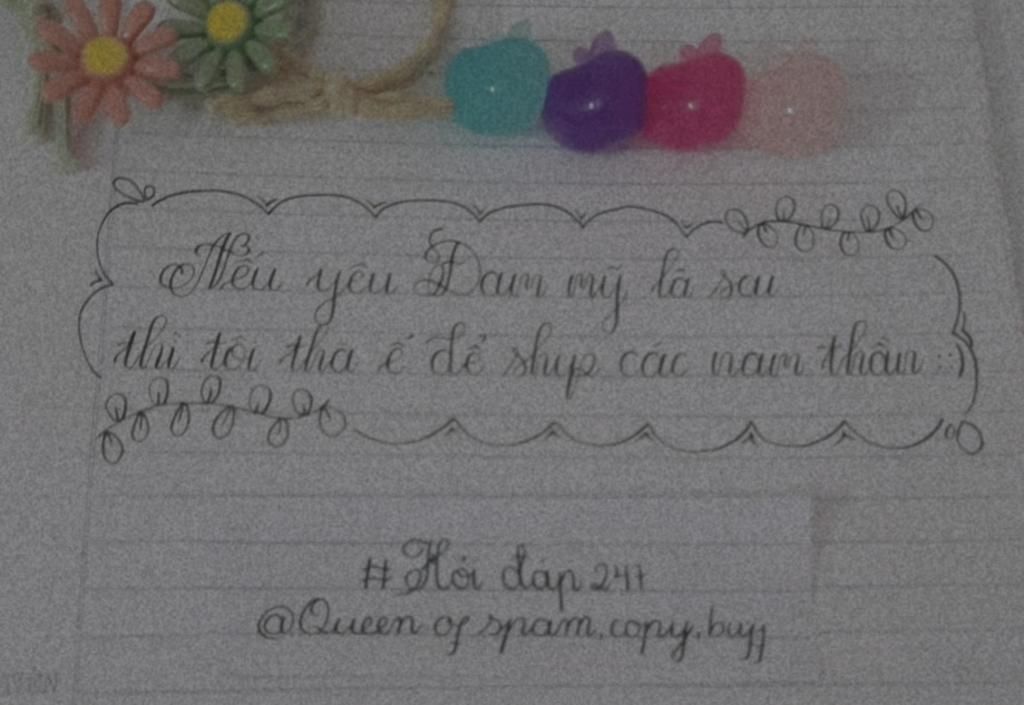 Nếu yêu Đam mỹ là sai
thì tôi tha ế để ship các nam thần :)
# Hỏi đáp 247
@Queen of spam, copy, buff